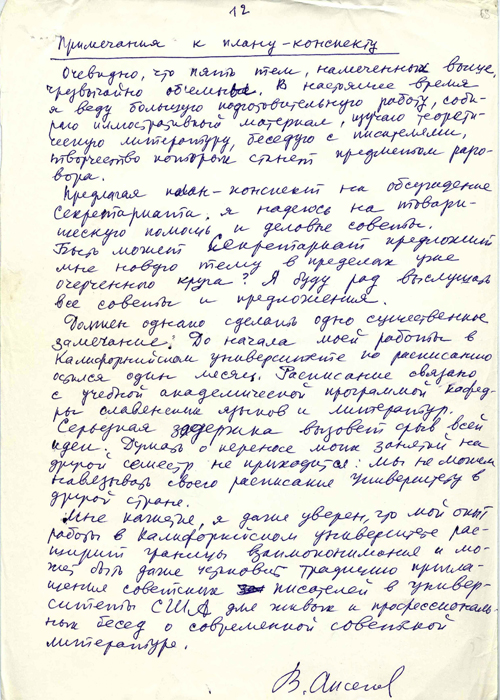 12
Примечания к плану-конспекту
Очевидно, что пять тем, намеченных выше,
чрезвычайно объемны. В настоящее время
я веду большую подготовительную работу, соби-
раю иллюстративный материал, изучаю теорети-
ческую литературу, беседую с писателями,
творчество которых станет предметом разго-
вора.
Предлагая план-конспект на обсуждение
Секретариата, я надеюсь на товари-
щескую помощь и деловые советы.
Быть может Секретариат предложит
мне новую тему в пределах уже
очерченного круга? Я буду рад выслушать
все советы и предложения.
Должен однако сделать одно существенное
замечание: До начала моей работы в
Калифорнийском университете по расписанию
остался один месяц. Расписание связано
с учебной академической программой кафед-
ры славянских языков и литератур.
Серьезная задержка вызовет срыв всей
идеи. Думать о переносе моих занятий на
другой семестр не приходится: мы не можем
навязывать своего расписания университету в
другой стране.
Мне кажется, я даже уверен, что мой опыт
работы в Калифорнийском университете рас-
ширит границы взаимопонимания и мо-
жет быть даже установит традицию пригла-
шения советских писателей в универ-
ситеты США для живых и профессиональ-
ных бесед о современной советской
литературе.
В. Аксенов